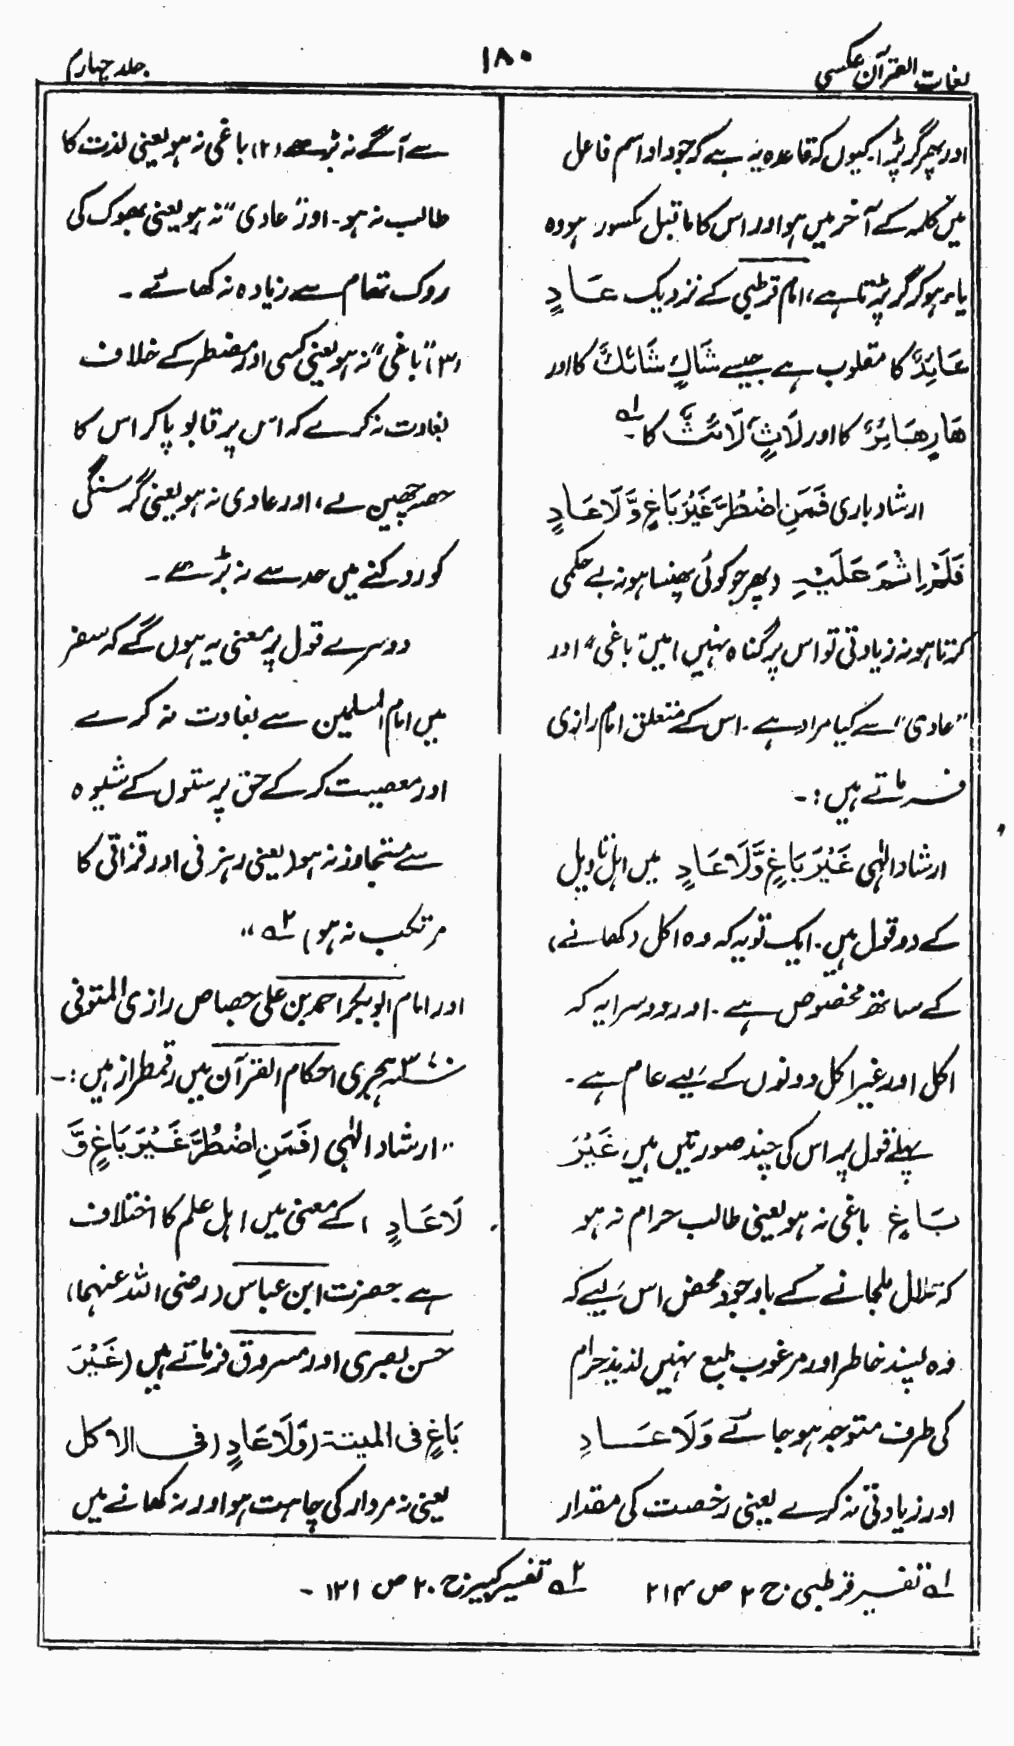 لغات القرآن عکسی
۱۸۰
جلد چہارم
اور پھر گر پڑا۔ کیوں کہ قاعدہ یہ ہے کہ جو واو اسم فاعل
میں کلمہ کے آخر میں ہو اور اس کا ماقبل مکسور ہو وہ
یاء ہو کر گر پڑتا ہے، امام قرطبی کے نزدیک عَادٍ
عَائِدٌ کا مقلوب ہے جیسے شَاكٍ شَائكٌ کا اور
هَارٍ هَائِرٌ کا اور لَاثٍ لَائثٌ کا۔ لہ۱
ارشاد باری فَمَنِ اضْطُرَّ غَيْرَ بَاغٍ وَّلَا عَادٍ
فَلَا اِثْمَ عَلَيْهِ (پھر جو کوئی پھنسا ہو نہ بے حکمی
کرتا ہو نہ زیادتی تو اس پر گناہ نہیں) میں "باغی" اور
"عادی" سے کیا مراد ہے۔ اس کے متعلق امام رازی
فرماتے ہیں:۔
ارشاد الٰہی غَيْرَ بَاغٍ وَّلَا عَادٍ میں اہل تاویل
کے دو قول ہیں۔ ایک تو یہ کہ وہ اکل (کھانے)
کے ساتھ مخصوص ہے۔ اور دوسرا یہ کہ
اکل اور غیر اکل دونوں کے لیے عام ہے۔
پہلے قول پر اس کی چند صورتیں ہیں غَيْرَ
بَاغٍ باغی نہ ہو یعنی طالب حرام نہ ہو
کہ حلال ملجانے کے باوجود محض اس لیے کہ
وہ پسند خاطر اور مرغوب طبع نہیں لذیذ حرام
کی طرف متوجہ ہو جائے وَلَا عَادٍ
اور زیادتی نہ کرے یعنی رخصت کی مقدار
سے آگے نہ بڑھے (۲) باغی نہ ہو یعنی لذت کا
طالب نہ ہو۔ اور "عادی" نہ ہو یعنی بھوک کی
روک تھام سے زیادہ نہ کھائے۔
(۳) "باغی" نہ ہو یعنی کسی اور مضطر کے خلاف
بغاوت نہ کرے کہ اس پر قابو پا کر اس کا
حصہ چھین لے، اور عادی نہ ہو یعنی گرسنگی
کو روکنے میں حد سے نہ بڑھے۔
دوسرے قول پر معنی یہ ہوں گے کہ سفر
میں امام المسلمین سے بغاوت نہ کرے
اور معصیت کر کے حق پرستوں کے شیوہ
سے متجاوز نہ ہو (یعنی رہزنی اور قزاقی کا
مرتکب نہ ہو) لہ۲"
اور امام ابوبکر احمد بن علی جصاص رازی المتوفی
۳۷۰ ہجری احکام القرآن میں رقمطراز ہیں:۔
"ارشاد الٰہی (فَمَنِ اضْطُرَّ غَيْرَ بَاغٍ وَّ
لَا عَادٍ) کے معنی میں اہل علم کا اختلاف
ہے۔ حضرت ابن عباس (رضی اللہ عنہما)
حسن بصری اور مسروق فرماتے ہیں (غَيْرَ
بَاغٍ فی المیتۃ (وَّلَا عَادٍ) فی الاکل
یعنی نہ مردار کی چاہت ہو اور نہ کھانے میں
لہ۱ تفسیر قرطبی ج ۲ ص ۲۱۴
لہ۲ تفسیر کبیر ج ۲۰ ص ۱۲۱۔